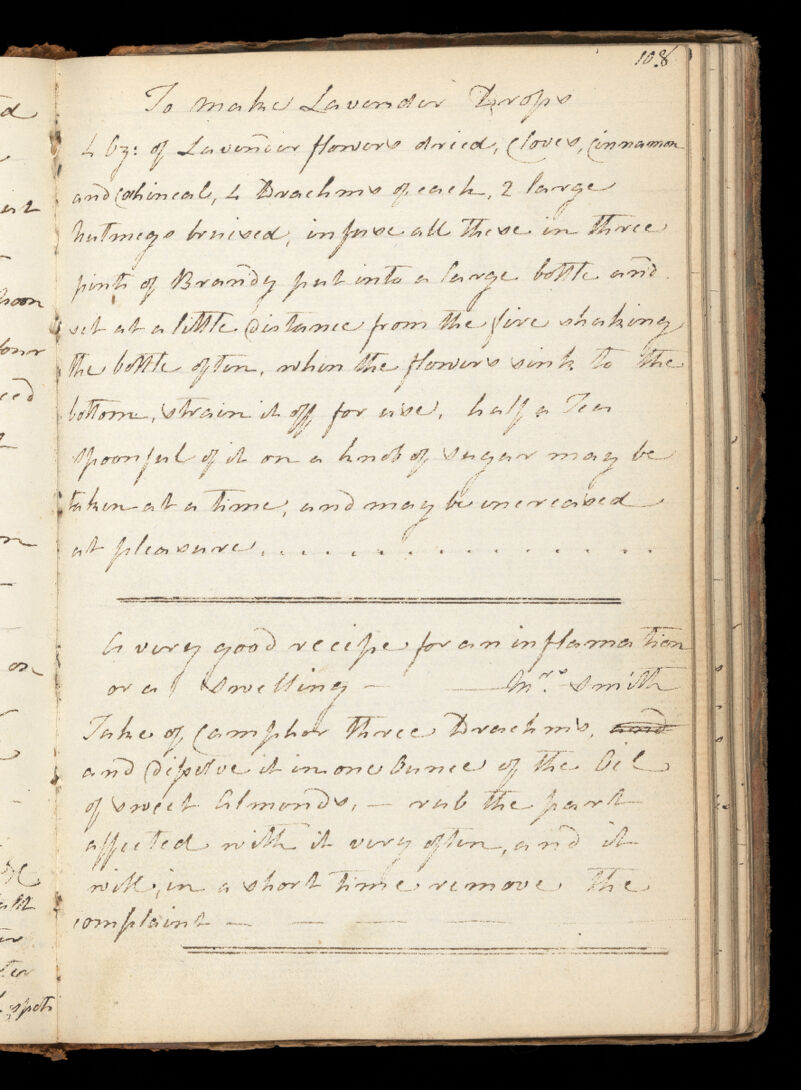 108
To make Lavender Drops
4 Oz: of Lavender flowers dried, Cloves, Cinnamon
and Cohineal, 4 Drachms of each, 2 large
Nutmegs bruised, infuse all these in three
pints of Brandy put into a large bottle and
set at a little distance from the fire shaking
the bottle often, when the flowers sink to the
bottom, strain it off for use, half a Tea
spoonful of it on a knob of sugar may be
taken at a time, and may be increased
at pleasure . . . . . . . . . . . . . .
A very good recipe for an inflamation
or a swelling — Mrs. Smith
Take of Camphor three Drachms, and
and dissolve it in one Ounce of the Oil
of sweet Almonds, — rub the part
affected with it very often, and it
will, in a short time remove the
complaint — — — —